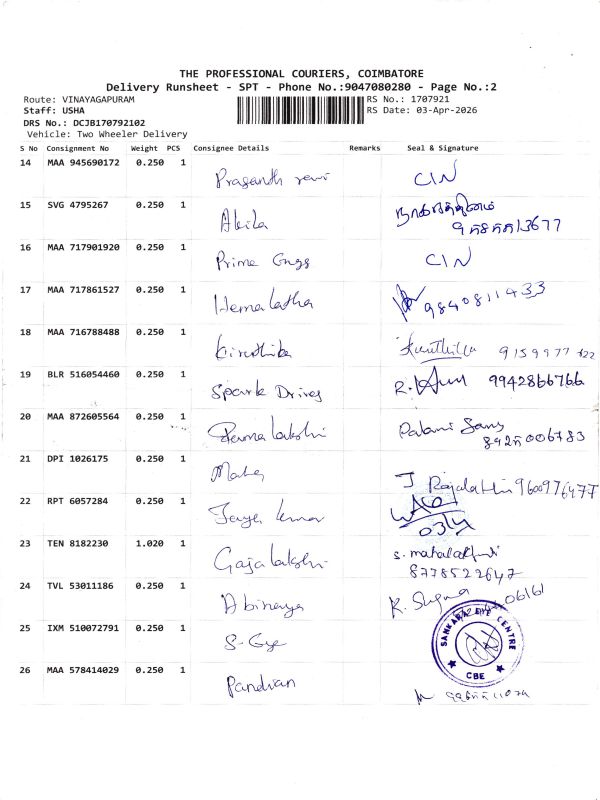 THE PROFESSIONAL COURIERS, COIMBATORE
Delivery Runsheet - SPT - Phone No.:9047080280 - Page No.:2
Route: VINAYAGAPURAM RS No.: 1707921
Staff: USHA RS Date: 03-Apr-2026
DRS No.: DCJB170792102
Vehicle: Two Wheeler Delivery
S No Consignment No Weight PCS Consignee Details Remarks Seal & Signature
14 MAA 945690172 0.250 1 Prasanth CIN
15 SVG 4795267 0.250 1 Akila
16 MAA 717901920 0.250 1 Prime Enggs CIN
17 MAA 717861527 0.250 1 Hemalatha 9840811433
18 MAA 716788488 0.250 1 Kiruthika 9159977
19 BLR 516054460 0.250 1 Spark Drives R. 9942866766
20 MAA 872605564 0.250 1 Palani Samy
21 DPI 1026175 0.250 1 J
22 RPT 6057284 0.250 1 Jaya Kumar
03/4
23 TEN 8182230 1.020 1 Gajalakshi S.
8778522647
24 TVL 53011186 0.250 1 Abinaya K. Suguna
25 IXM 510072791 0.250 1 S-Eye SANKARA EYE CENTRE
CBE
26 MAA 578414029 0.250 1 Pandian